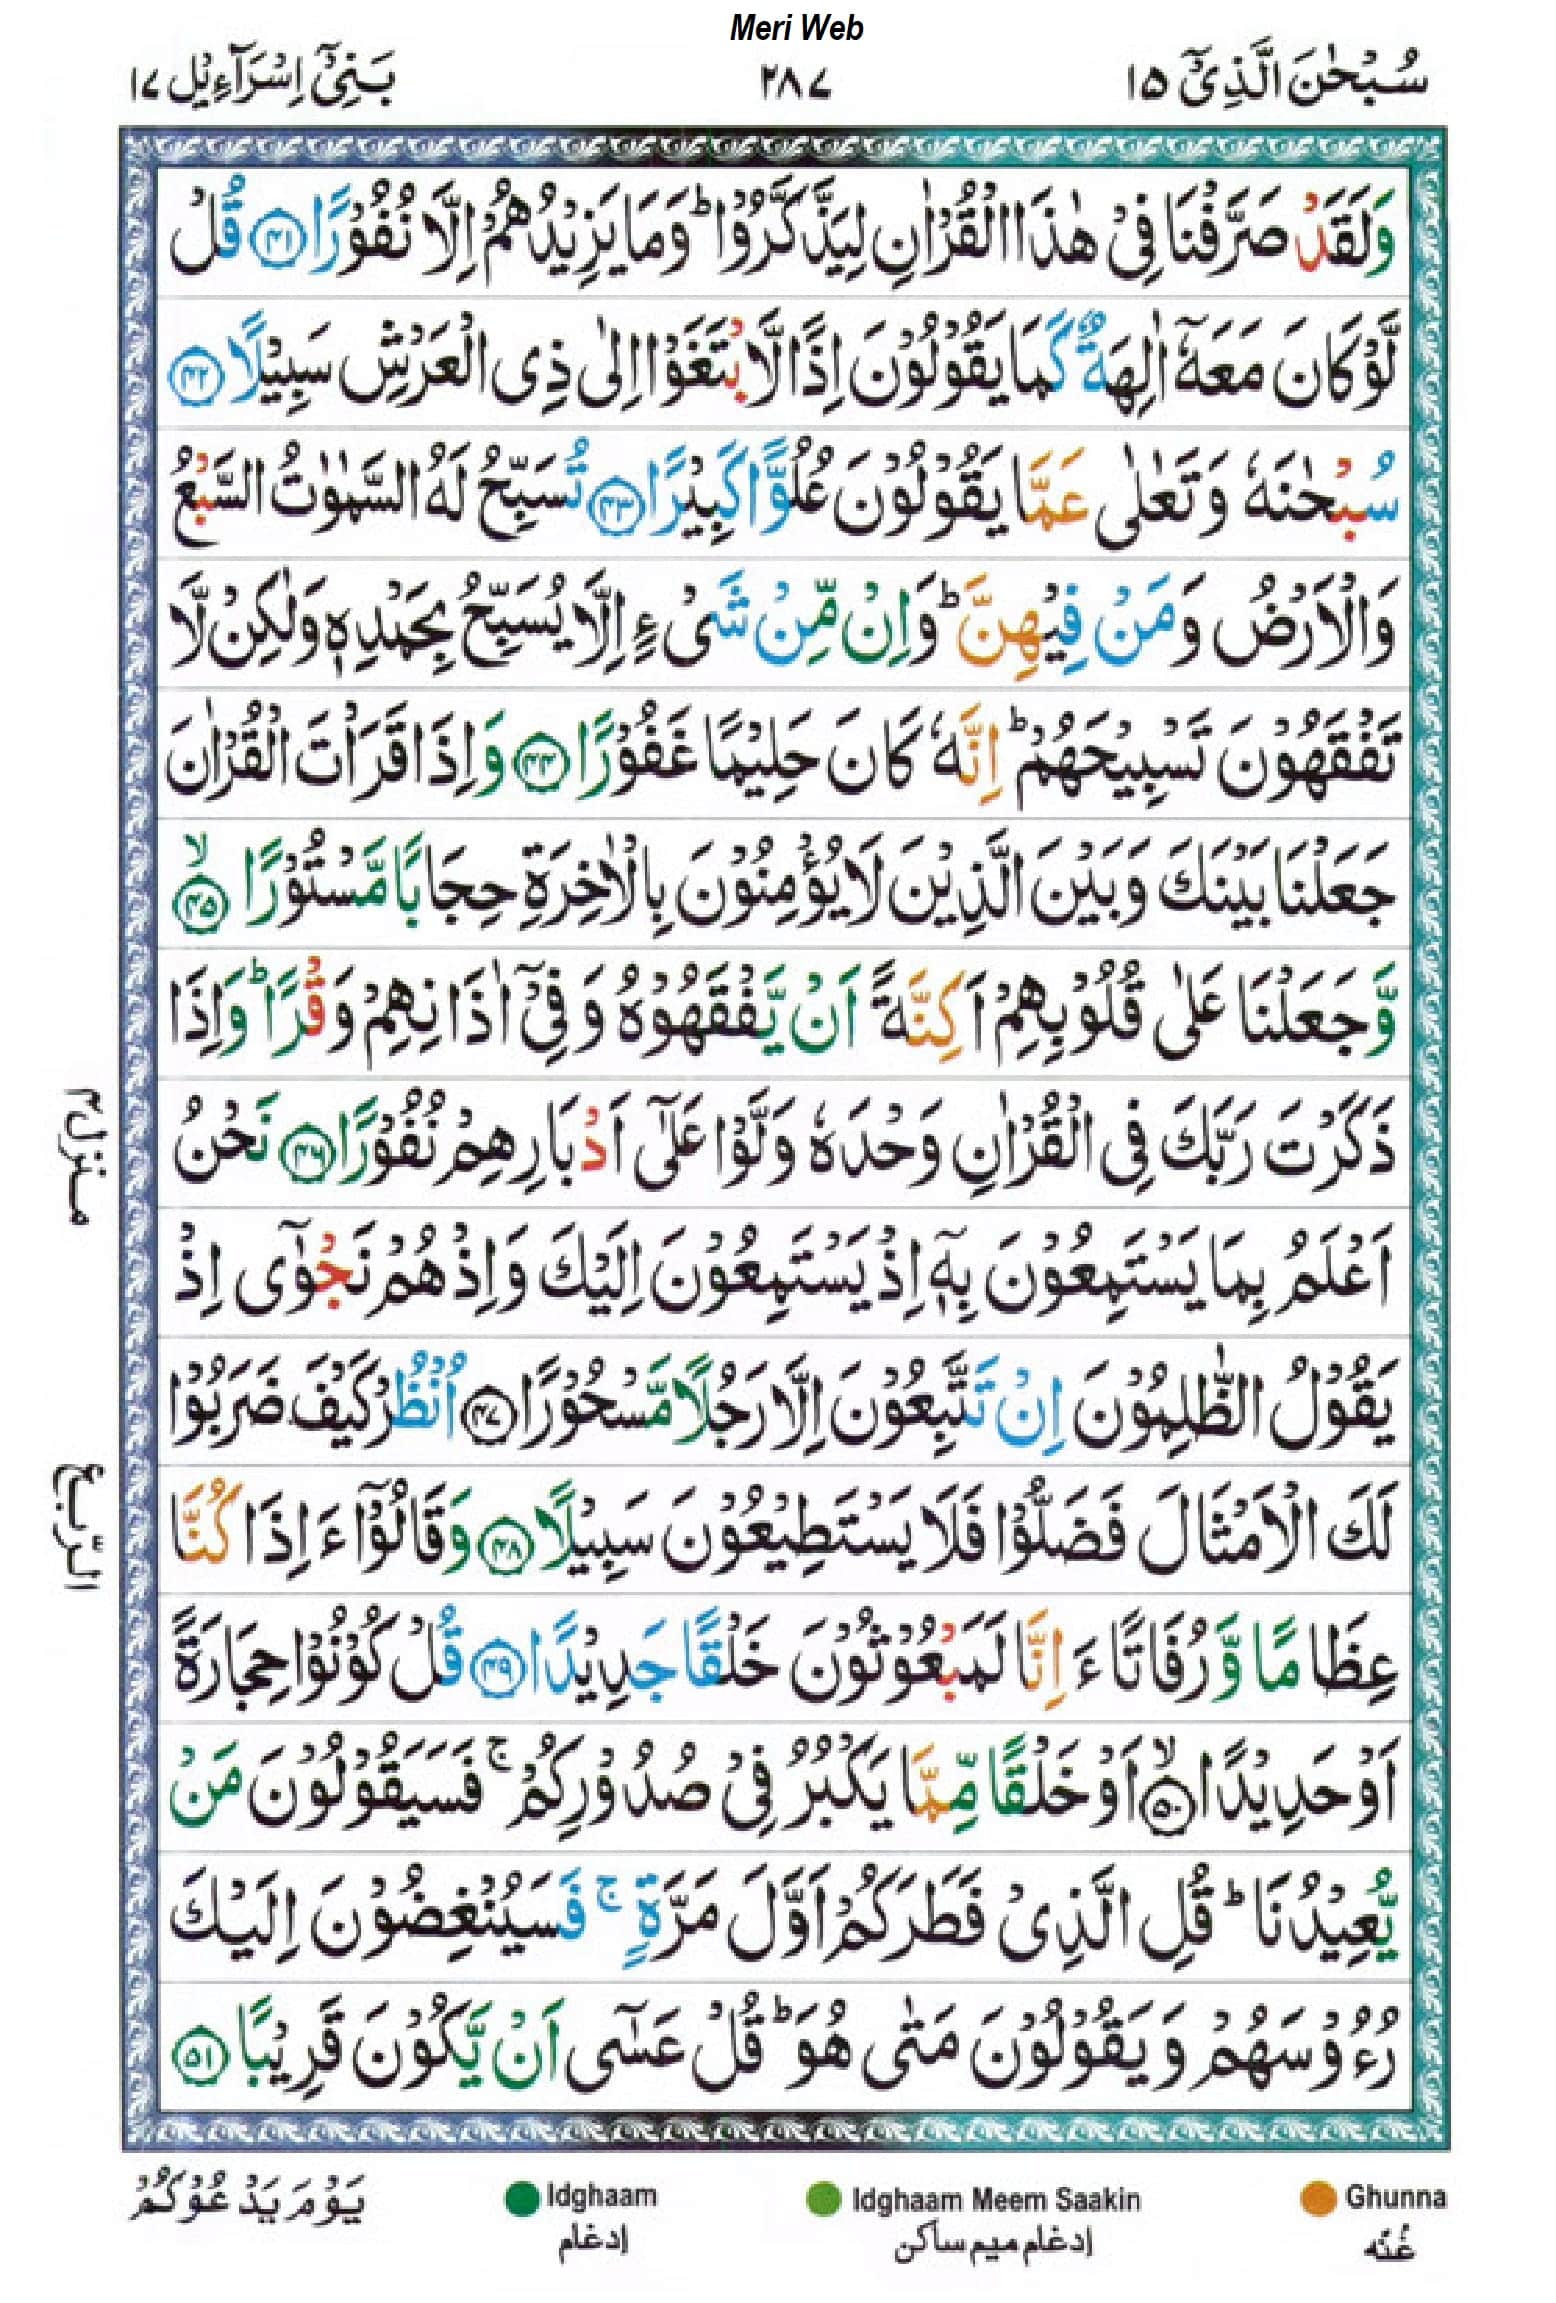 Meri Web
سُبْحٰنَ الَّذِیْۤ ۱۵
۲۸۷
بَنِیْۤ اِسْرَآءِیْل ۱۷
وَلَقَدْ صَرَّفْنَا فِیْ هٰذَا الْقُرْاٰنِ لِیَذَّكَّرُوْا ؕ وَمَا یَزِیْدُهُمْ اِلَّا نُفُوْرًا ﴿۴۱﴾ قُلْ
لَّوْ كَانَ مَعَهٗۤ اٰلِهَةٌ كَمَا یَقُوْلُوْنَ اِذًا لَّابْتَغَوْا اِلٰی ذِی الْعَرْشِ سَبِیْلًا ﴿۴۲﴾
سُبْحٰنَهٗ وَتَعٰلٰی عَمَّا یَقُوْلُوْنَ عُلُوًّا كَبِیْرًا ﴿۴۳﴾ تُسَبِّحُ لَهُ السَّمٰوٰتُ السَّبْعُ
وَالْاَرْضُ وَمَنْ فِیْهِنَّ ؕ وَاِنْ مِّنْ شَیْءٍ اِلَّا یُسَبِّحُ بِحَمْدِهٖ وَلٰكِنْ لَّا
تَفْقَهُوْنَ تَسْبِیْحَهُمْ ؕ اِنَّهٗ كَانَ حَلِیْمًا غَفُوْرًا ﴿۴۴﴾ وَاِذَا قَرَاْتَ الْقُرْاٰنَ
جَعَلْنَا بَیْنَكَ وَبَیْنَ الَّذِیْنَ لَا یُؤْمِنُوْنَ بِالْاٰخِرَةِ حِجَابًا مَّسْتُوْرًا ۙ﴿۴۵﴾
وَّجَعَلْنَا عَلٰی قُلُوْبِهِمْ اَكِنَّةً اَنْ یَّفْقَهُوْهُ وَفِیْۤ اٰذَانِهِمْ وَقْرًا ؕ وَاِذَا
ذَكَرْتَ رَبَّكَ فِی الْقُرْاٰنِ وَحْدَهٗ وَلَّوْا عَلٰۤی اَدْبَارِهِمْ نُفُوْرًا ﴿۴۶﴾ نَحْنُ
اَعْلَمُ بِمَا یَسْتَمِعُوْنَ بِهٖۤ اِذْ یَسْتَمِعُوْنَ اِلَیْكَ وَاِذْ هُمْ نَجْوٰۤی اِذْ
یَقُوْلُ الظّٰلِمُوْنَ اِنْ تَتَّبِعُوْنَ اِلَّا رَجُلًا مَّسْحُوْرًا ﴿۴۷﴾ اُنْظُرْ كَیْفَ ضَرَبُوْا
لَكَ الْاَمْثَالَ فَضَلُّوْا فَلَا یَسْتَطِیْعُوْنَ سَبِیْلًا ﴿۴۸﴾ وَقَالُوْۤا ءَاِذَا كُنَّا
عِظَامًا وَّرُفَاتًا ءَاِنَّا لَمَبْعُوْثُوْنَ خَلْقًا جَدِیْدًا ﴿۴۹﴾ قُلْ كُوْنُوْا حِجَارَةً
اَوْ حَدِیْدًا ۙ﴿۵۰﴾ اَوْ خَلْقًا مِّمَّا یَكْبُرُ فِیْ صُدُوْرِكُمْ ۚ فَسَیَقُوْلُوْنَ مَنْ
یُّعِیْدُنَا ؕ قُلِ الَّذِیْ فَطَرَكُمْ اَوَّلَ مَرَّةٍ ۚ فَسَیُنْغِضُوْنَ اِلَیْكَ
رُءُوْسَهُمْ وَیَقُوْلُوْنَ مَتٰی هُوَ ؕ قُلْ عَسٰۤی اَنْ یَّكُوْنَ قَرِیْبًا ﴿۵۱﴾
منزل۴
الرّبع
Ghunna
غُنّه
Idghaam Meem Saakin
إدغام میم ساکن
Idghaam
إدغام
یَوْمَ یَدْعُوْكُمْ